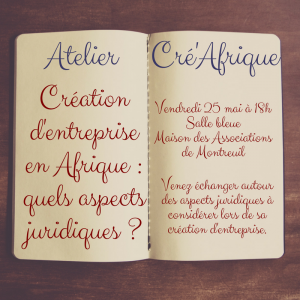 Atelier
Création
d'entreprise
en Afrique :
quels aspects
juridiques ?
Cré'Afrique
Vendredi 25 mai à 18h
Salle bleue
Maison des Associations
de Montreuil
Venez échanger autour
des aspects juridiques à
considérer lors de sa
création d'entreprise.